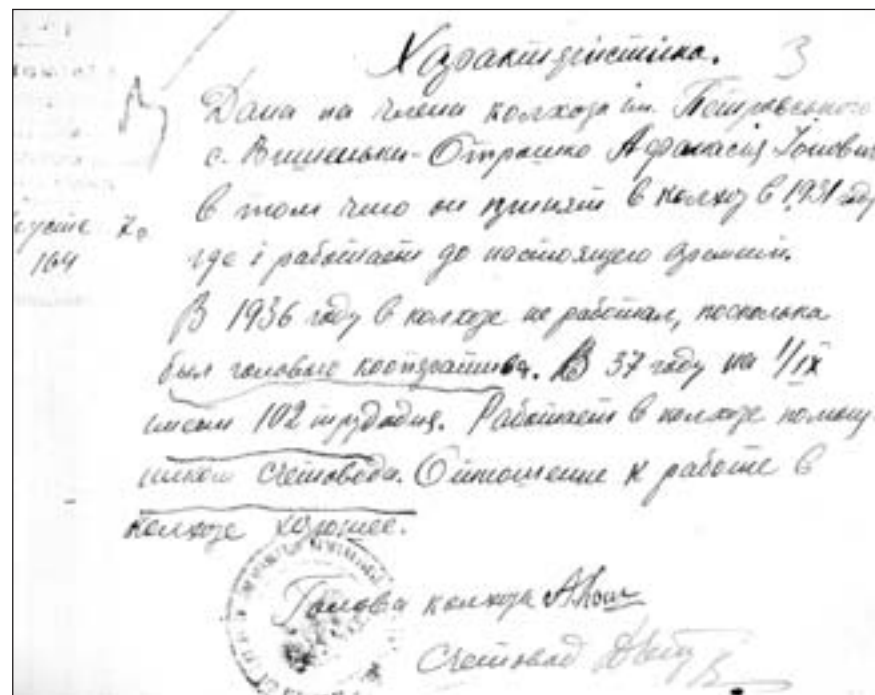 Характеристика. 3
Дана на члена колхоза ім. Петровського
с. Вишеньки - Отрошко Афанасія Іовович
в том что он принят в колхоз в 1931 году
где і работает до настоящего времени.
В 1936 году в колхозе не работал, посколька
был головые кооператива. В 37 году на 1/ІХ
имеет 102 трудодня. Работает в колхозе помощ-
ником счетовода. Отношение к работе в
колхозе хорошее.
Голова колхоза
Счетовод
164